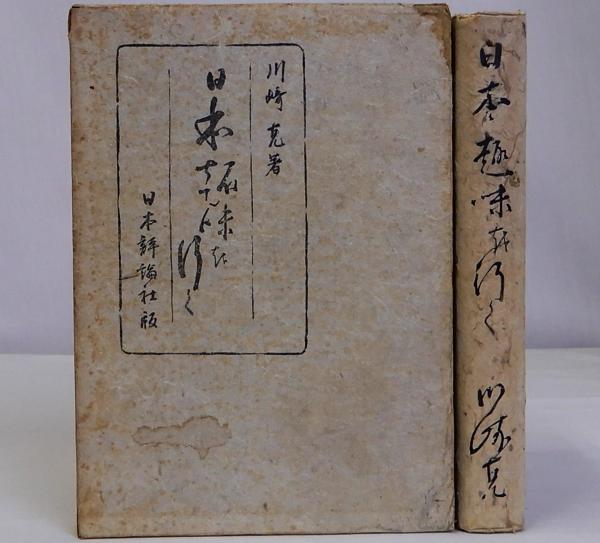 川崎克著
日本趣味を行く
日本評論社版
日本趣味を行く
川崎克